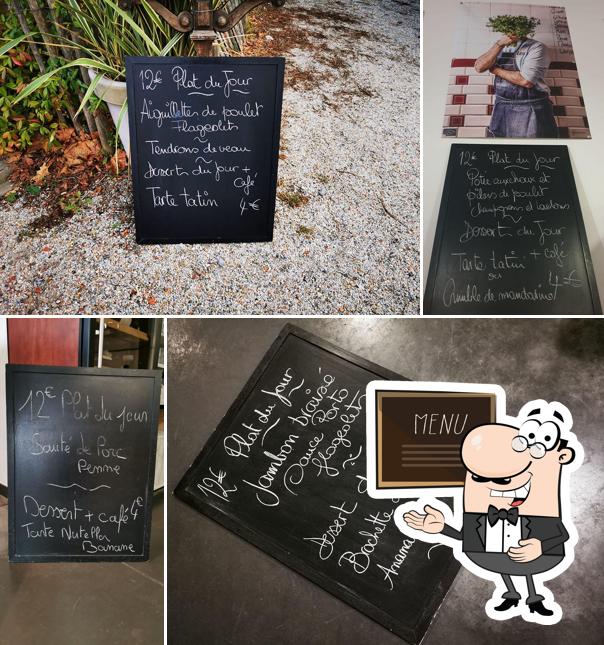 12€ Plat du Jour
Aiguillettes de poulet
Flageolets
Tendrons de veau
Desserts du jour +
Café
Tarte tatin 4€
12€ Plat du jour
Potée aux choux et
pilons de poulet
champignons et lardons
Dessert du Jour
+ café
Tarte tatin
ou 4€
Crumble de mandarine
12€ Plat du jour
Sauté de Porc
Penne
Dessert + café 4€
Tarte Nutella
Banane
12€ Plat du Jour
Jambon braisé
Sauce Porto
flageolets
Dessert
Brochette
MENU